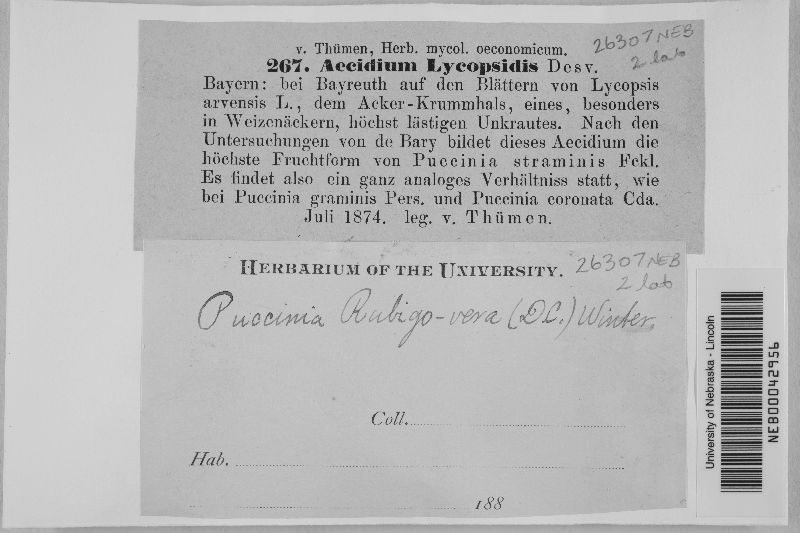 v. Thümen, Herb. mycol. oeconomicum.
26307 NEB
2 lab
267. Aecidium Lycopsidis Desv.
Bayern: bei Bayreuth auf den Blättern von Lycopsis
arvensis L., dem Acker-Krummhals, eines, besonders
in Weizenäckern, höchst lästigen Unkrautes. Nach den
Untersuchungen von de Bary bildet dieses Aecidium die
höchste Fruchtform von Puccinia straminis Fckl.
Es findet also ein ganz analoges Verhältniss statt, wie
bei Puccinia graminis Pers. und Puccinia coronata Cda.
Juli 1874. leg. v. Thümen.
HERBARIUM OF THE UNIVERSITY.
26307 NEB
2 lab
Puccinia Rubigo-vera (D.C.) Winter.
Coll.
Hab.
188
University of Nebraska - Lincoln
NEB00042956